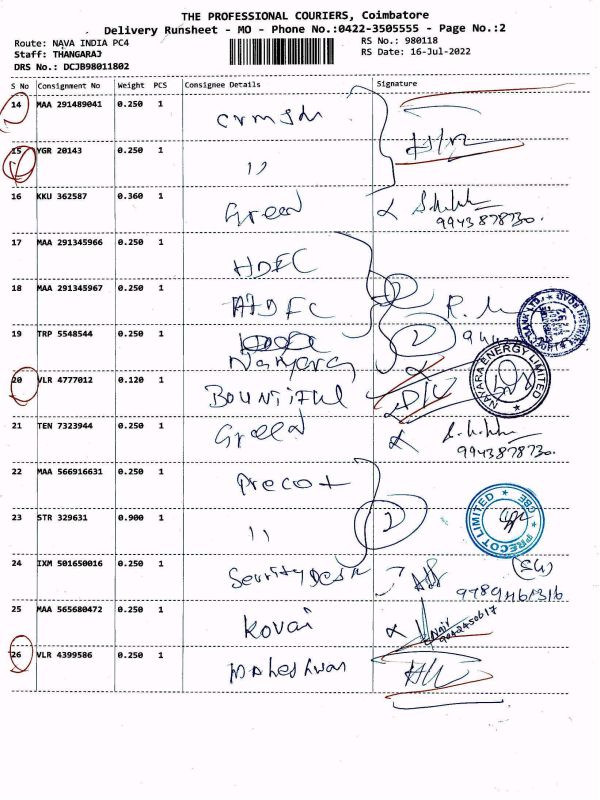 THE PROFESSIONAL COURIERS, Coimbatore
Delivery Runsheet - MO - Phone No.:0422-3505555 - Page No.:2
Route: NAVA INDIA PC4
RS No.: 980118
Staff: THANGARAJ
RS Date: 16-Jul-2022
DRS No.: DCJB98011802
S No Consignment No Weight PCS Consignee Details Signature
14 MAA 291489041 0.250 1
15 YGR 20143 0.250 1 11
16 KKU 362587 0.360 1 Greed
9943878730.
17 MAA 291345966 0.250 1 HDFC
18 MAA 291345967 0.250 1 HDFC 2
19 TRP 5548544 0.250 1 2
Nayara
NAYARA ENERGY LIMITED
20 VLR 4777012 0.120 1 Bountiful
21 TEN 7323944 0.250 1 Greed
9943878730.
22 MAA 566916631 0.250 1 Precot
23 STR 329631 0.900 1 11 2
PRECOT LIMITED CBE
24 IXM 501650016 0.250 1 Security Desk
25 MAA 565680472 0.250 1 Kovai
9042450617
26 VLR 4399586 0.250 1 Maheshwari